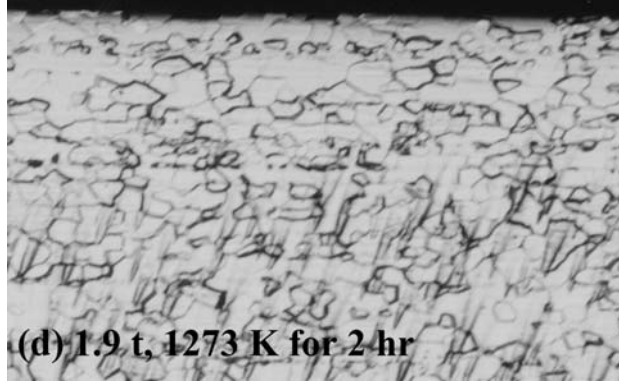 (d) 1.9 t, 1273 K for 2 hr